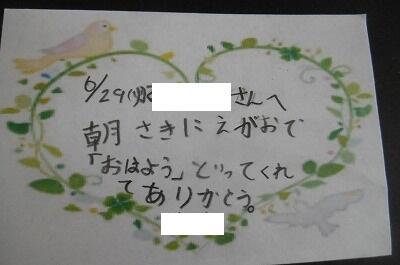 6/29(水) さんへ
朝 さきに えがおで
「おはよう」といってくれ
て ありがとう。